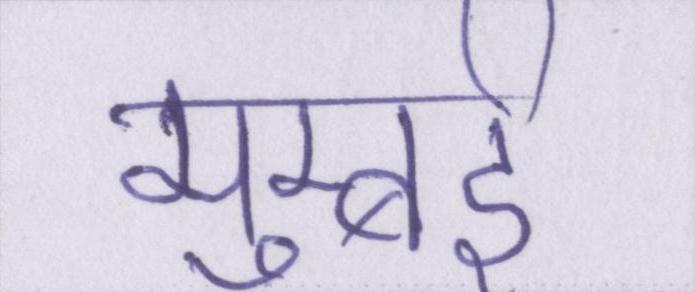 मुम्बई